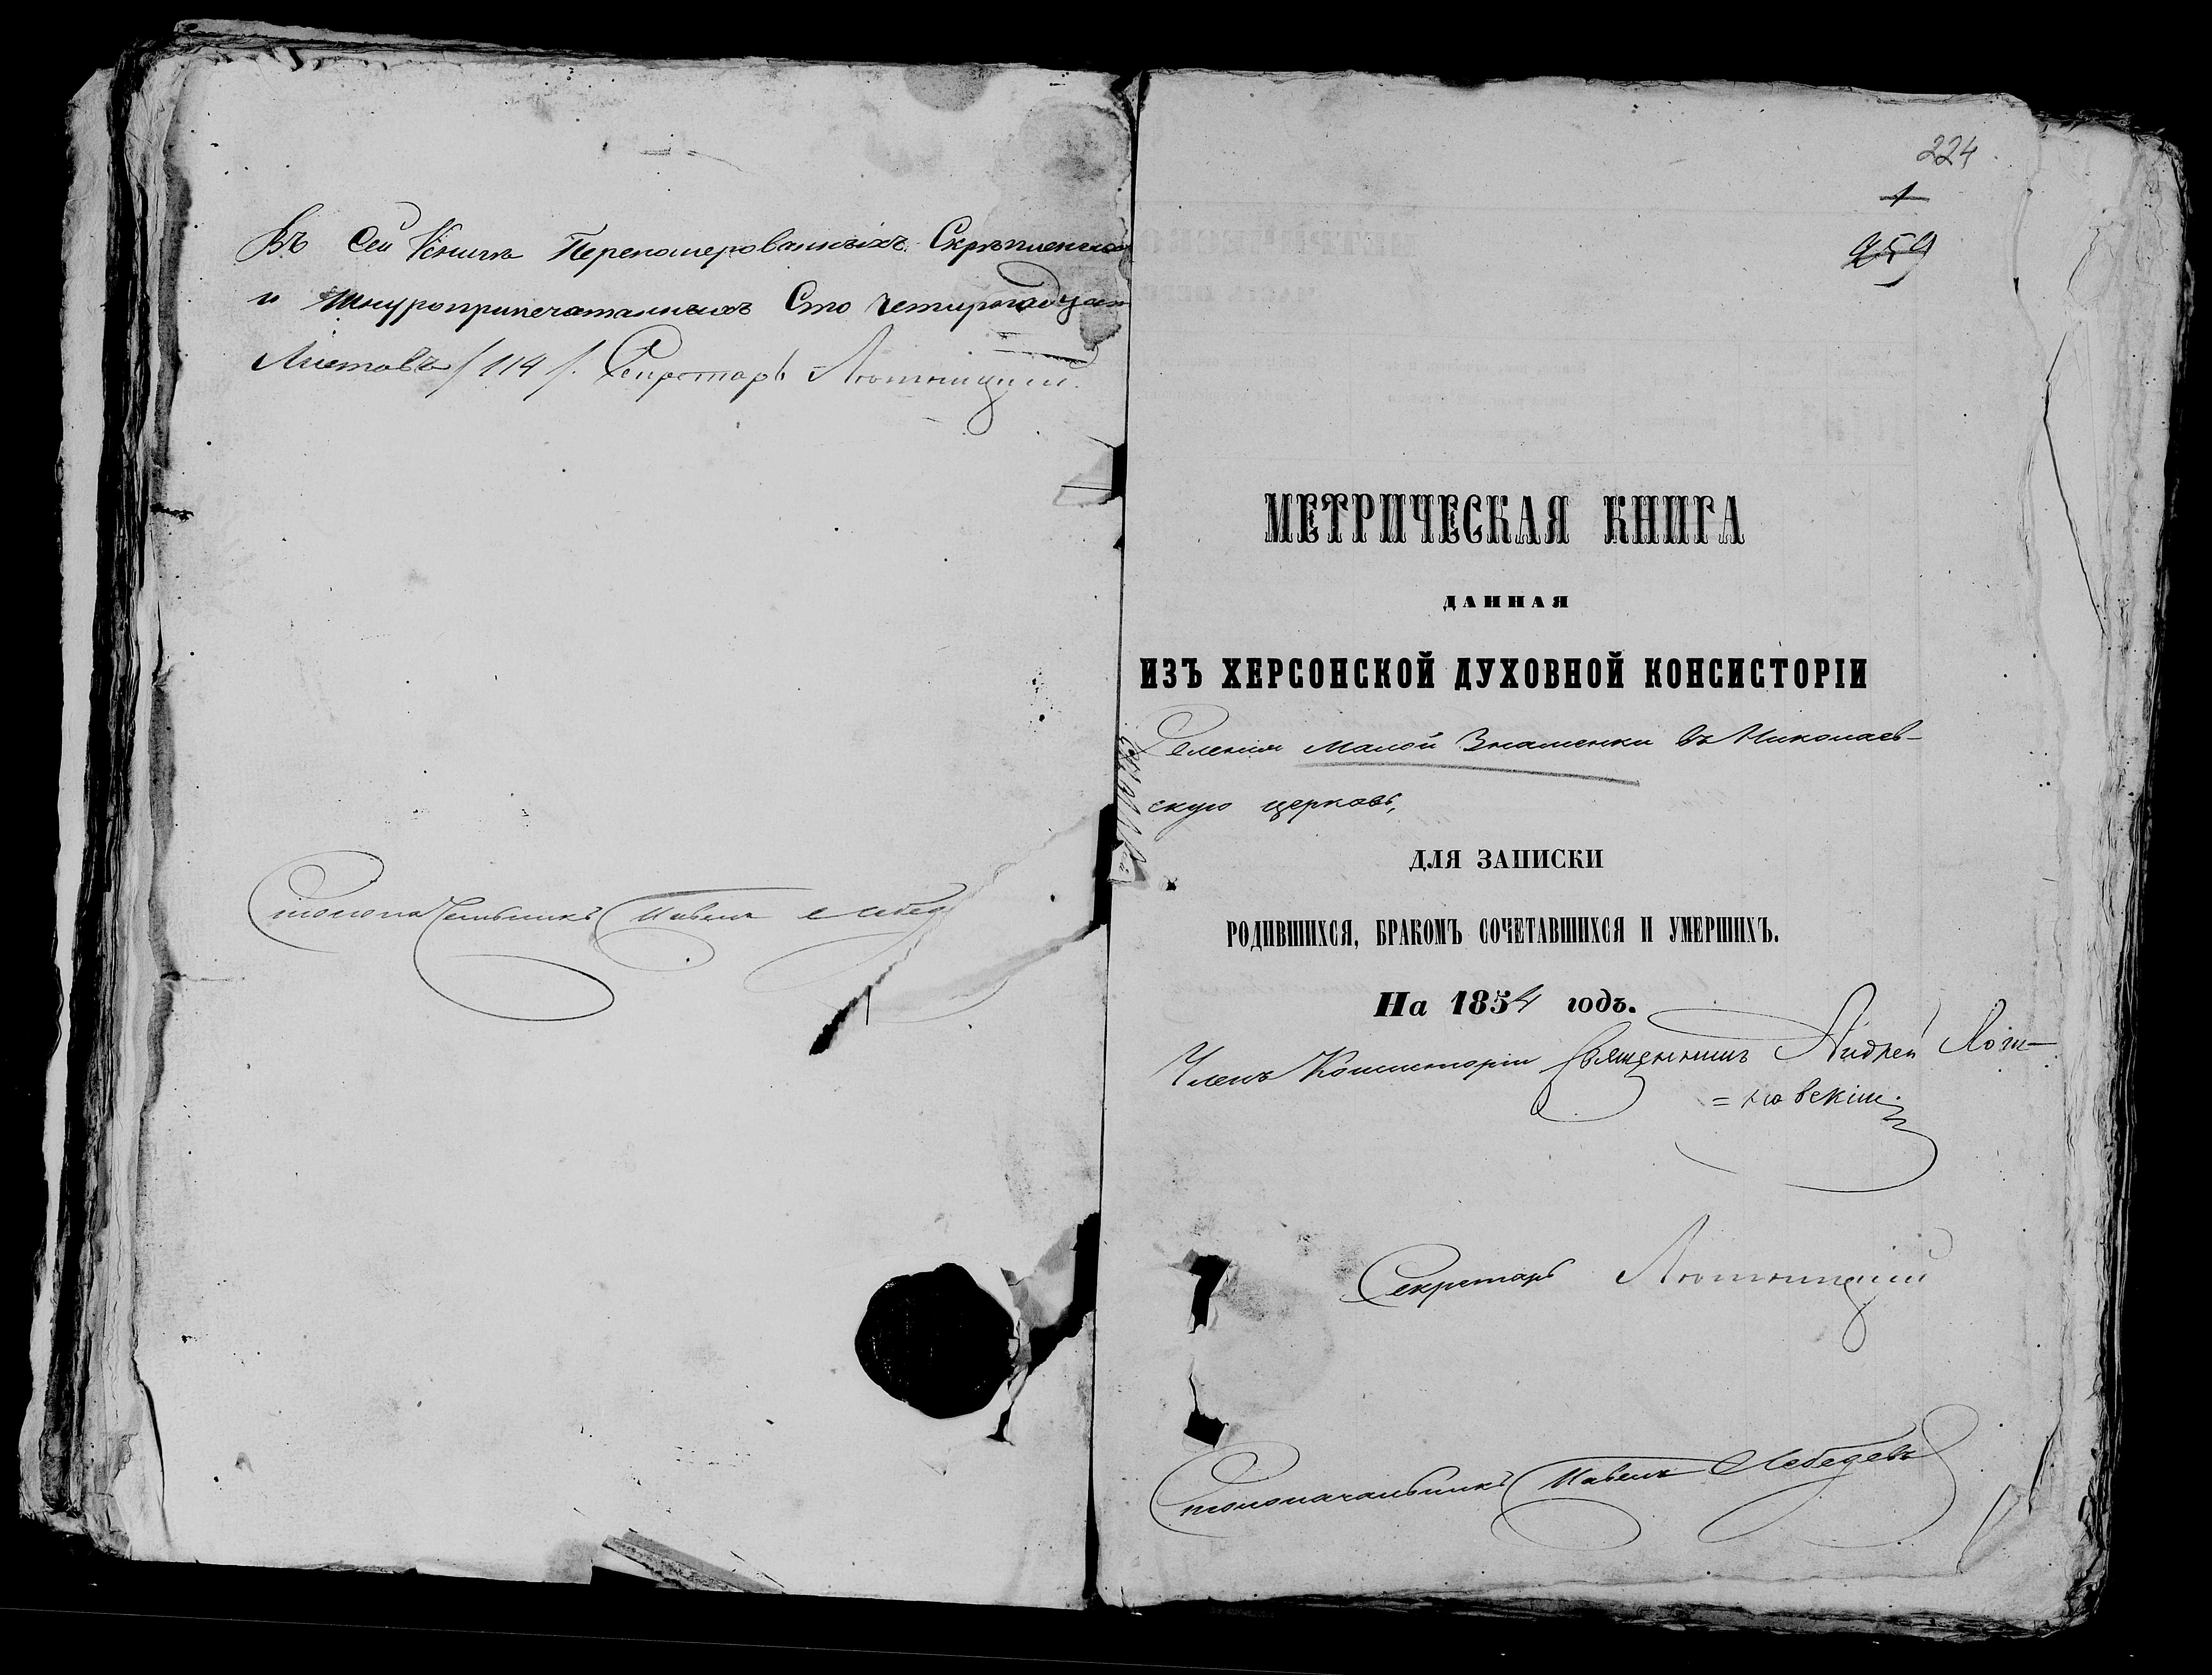 Въ сей Книгѣ Перекомерованныхъ Скрѣпленн
и шнуроприпечатанныхъ Сто четырнадцат
Листовъ /114/. Секретарь
Столоначальникъ Павелъ Лебед
224
1
959
МЕТРИЧЕСКАЯ КНИГА
ДАННАЯ
ИЗЪ ХЕРСОНСКОЙ ДУХОВНОЙ КОНСИСТОРІИ
Селенія Малой Знаменки въ Николаев-
скую церковь,
ДЛЯ ЗАПИСКИ
РОДИВШИХСЯ, БРАКОМЪ СОЧЕТАВШИХСЯ И УМЕРШИХЪ.
На 1854 годъ.
Членъ Консисторіи Священникъ Андрей Логи-
=новскій
Секретарь
Столоначальникъ Павелъ Лебедевъ